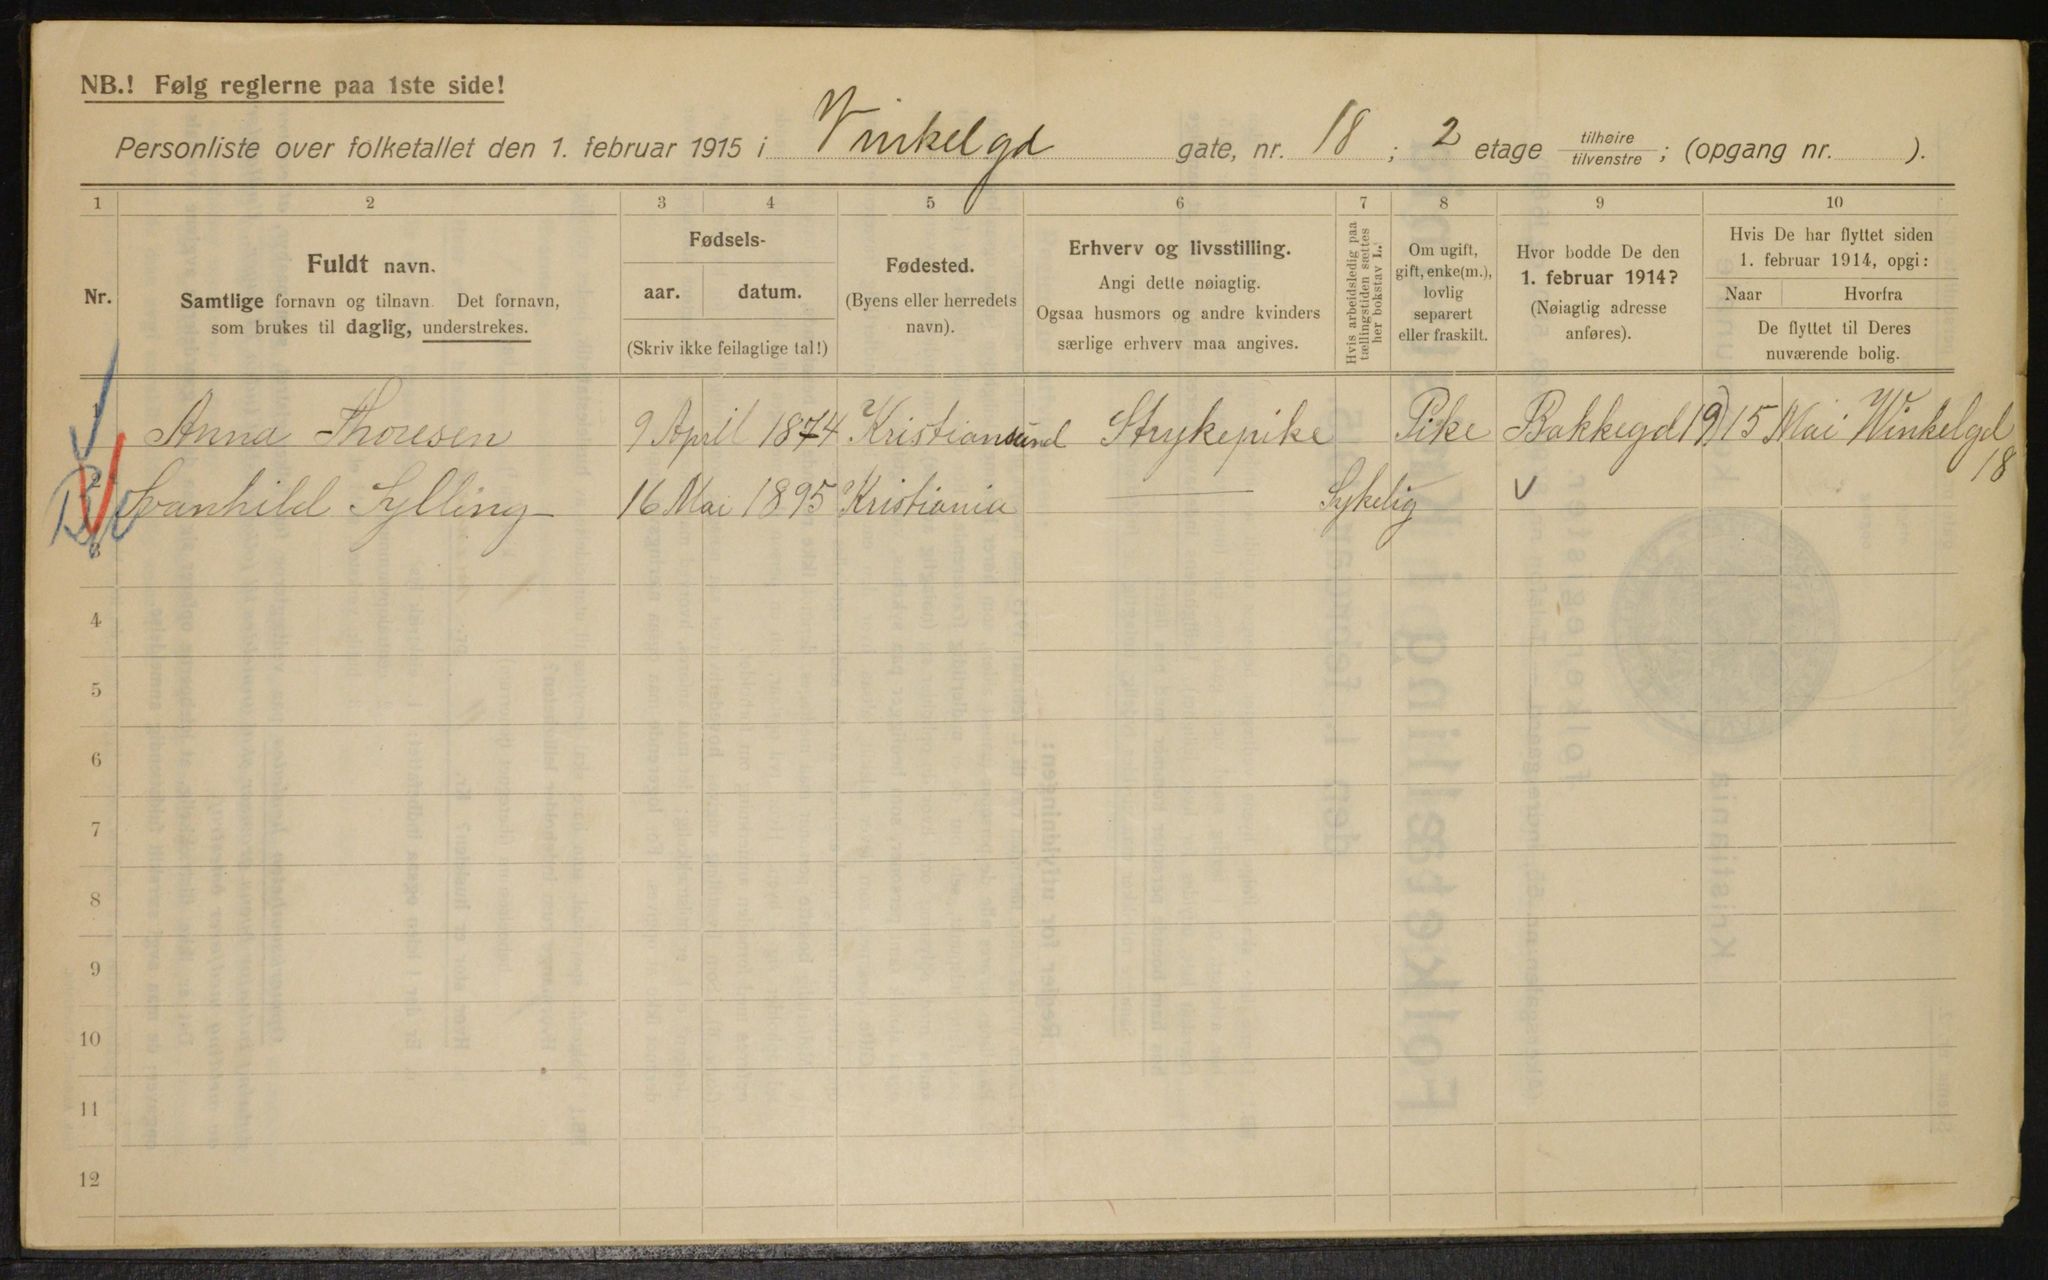 NB.! Følg reglerne paa 1ste side!
Personliste over folketallet den 1. februar 1915 i Vinkelgd gate, nr. 18; 2 etage tilhøire/tilvenstre; (opgang nr. ).
1 2 3 4 5 6 7 8 9 10
Nr.
Fuldt navn.
Samtlige fornavn og tilnavn. Det fornavn,
som brukes til daglig, understrekes.
Fødsels-
aar. datum.
(Skriv ikke feilagtige tal!)
Fødested.
(Byens eller herredets
navn).
Erhverv og livsstilling.
Angi dette nøiagtig.
Ogsaa husmors og andre kvinders
særlige erhverv maa angives.
Hvis arbeidsledig paa
tællingstiden sættes
her bokstav L.
Om ugift,
gift, enke(m.),
lovlig
separert
eller fraskilt.
Hvor bodde De den
1. februar 1914?
(Nøiagtig adresse
anføres).
Hvis De har flyttet siden
1. februar 1914, opgi:
Naar Hvorfra
De flyttet til Deres
nuværende bolig.
1 Anna Thoresen 9 April 1874 Kristiansund Strykepike Pike Bakkegd 19) 15 Mai Winkelgd
18
2 Svanhild Sylling 16 Mai 1895 Kristiania Sykelig
3
4
5
6
7
8
9
10
11
12